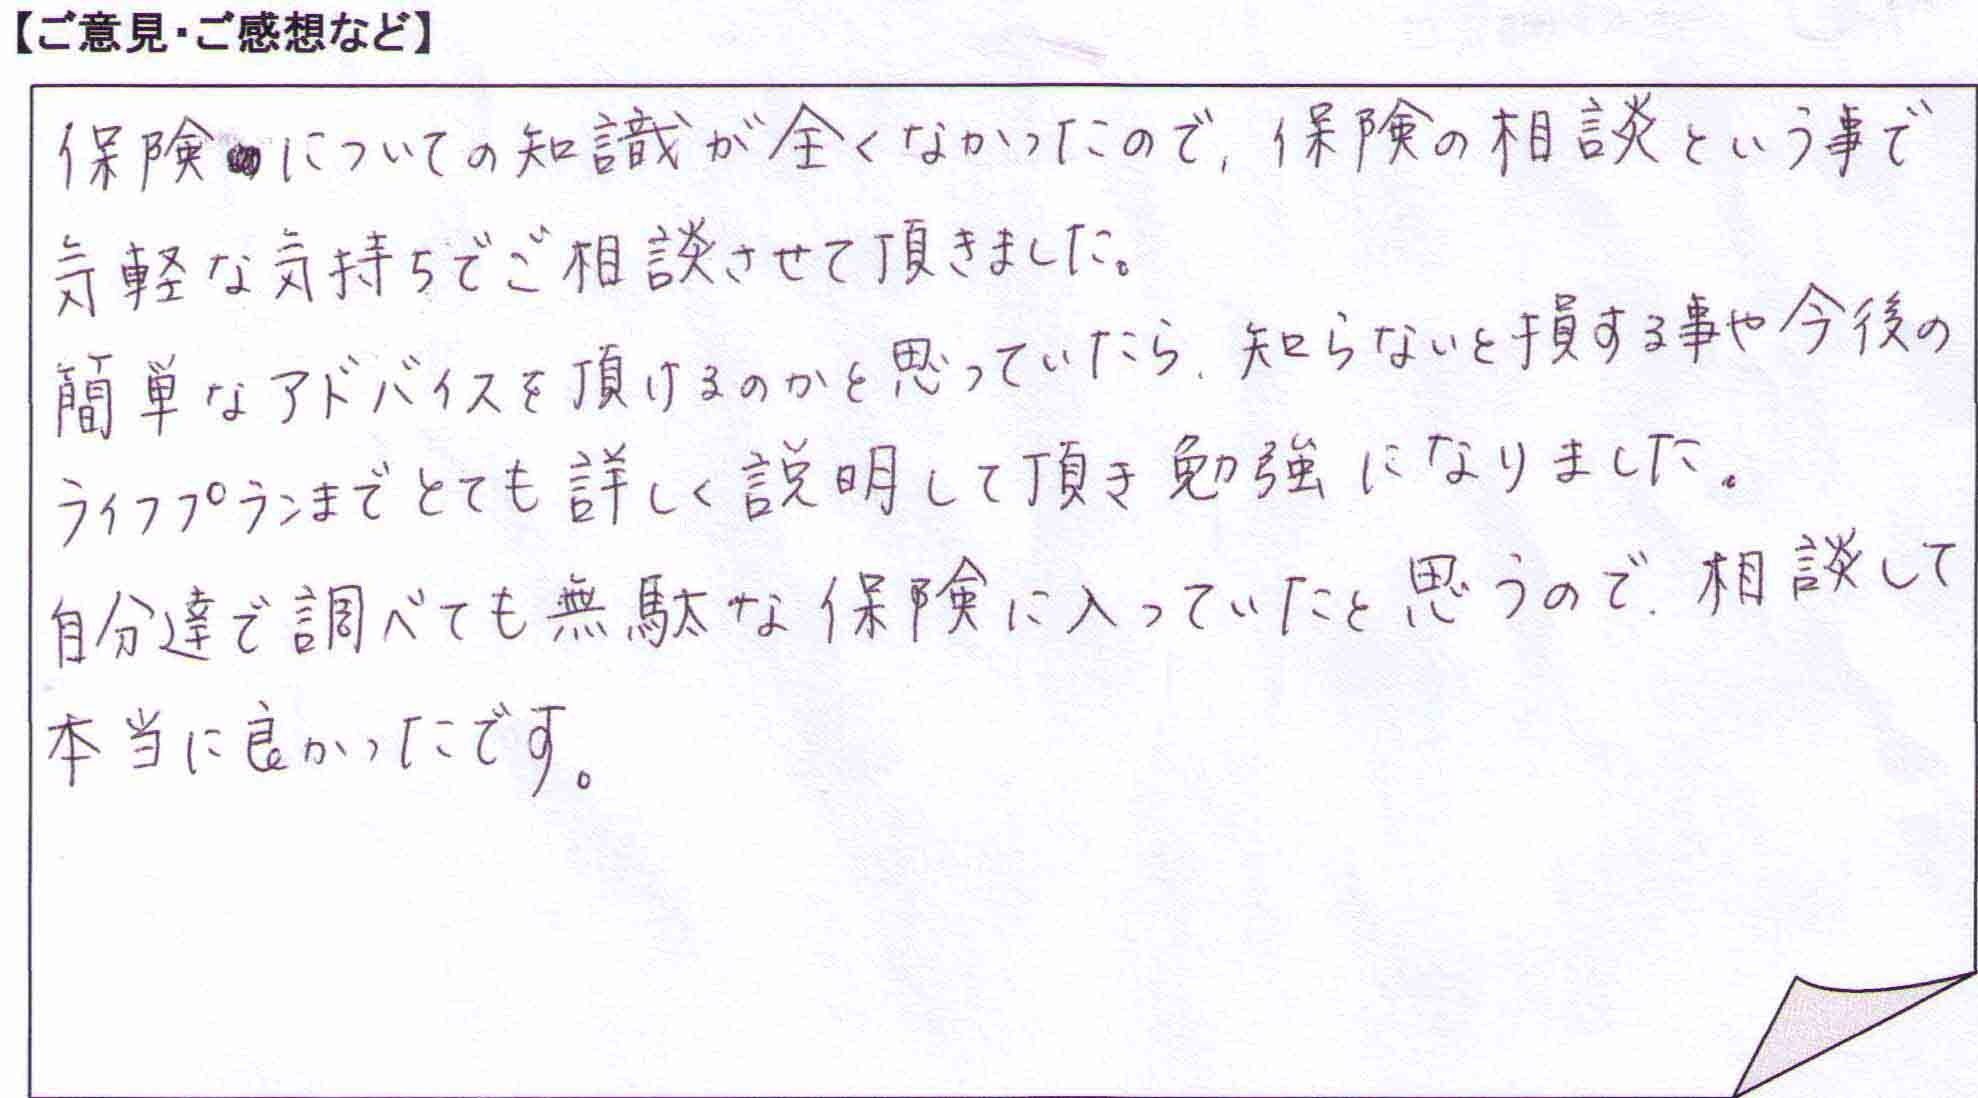 【ご意見・ご感想など】
保険についての知識が全くなかったので、保険の相談という事で
気軽な気持ちでご相談させて頂きました。
簡単なアドバイスを頂けるのかと思っていたら、知らないと損する事や今後の
ライフプランまでとても詳しく説明して頂き勉強になりました。
自分達で調べても無駄な保険に入っていたと思うので、相談して
本当に良かったです。